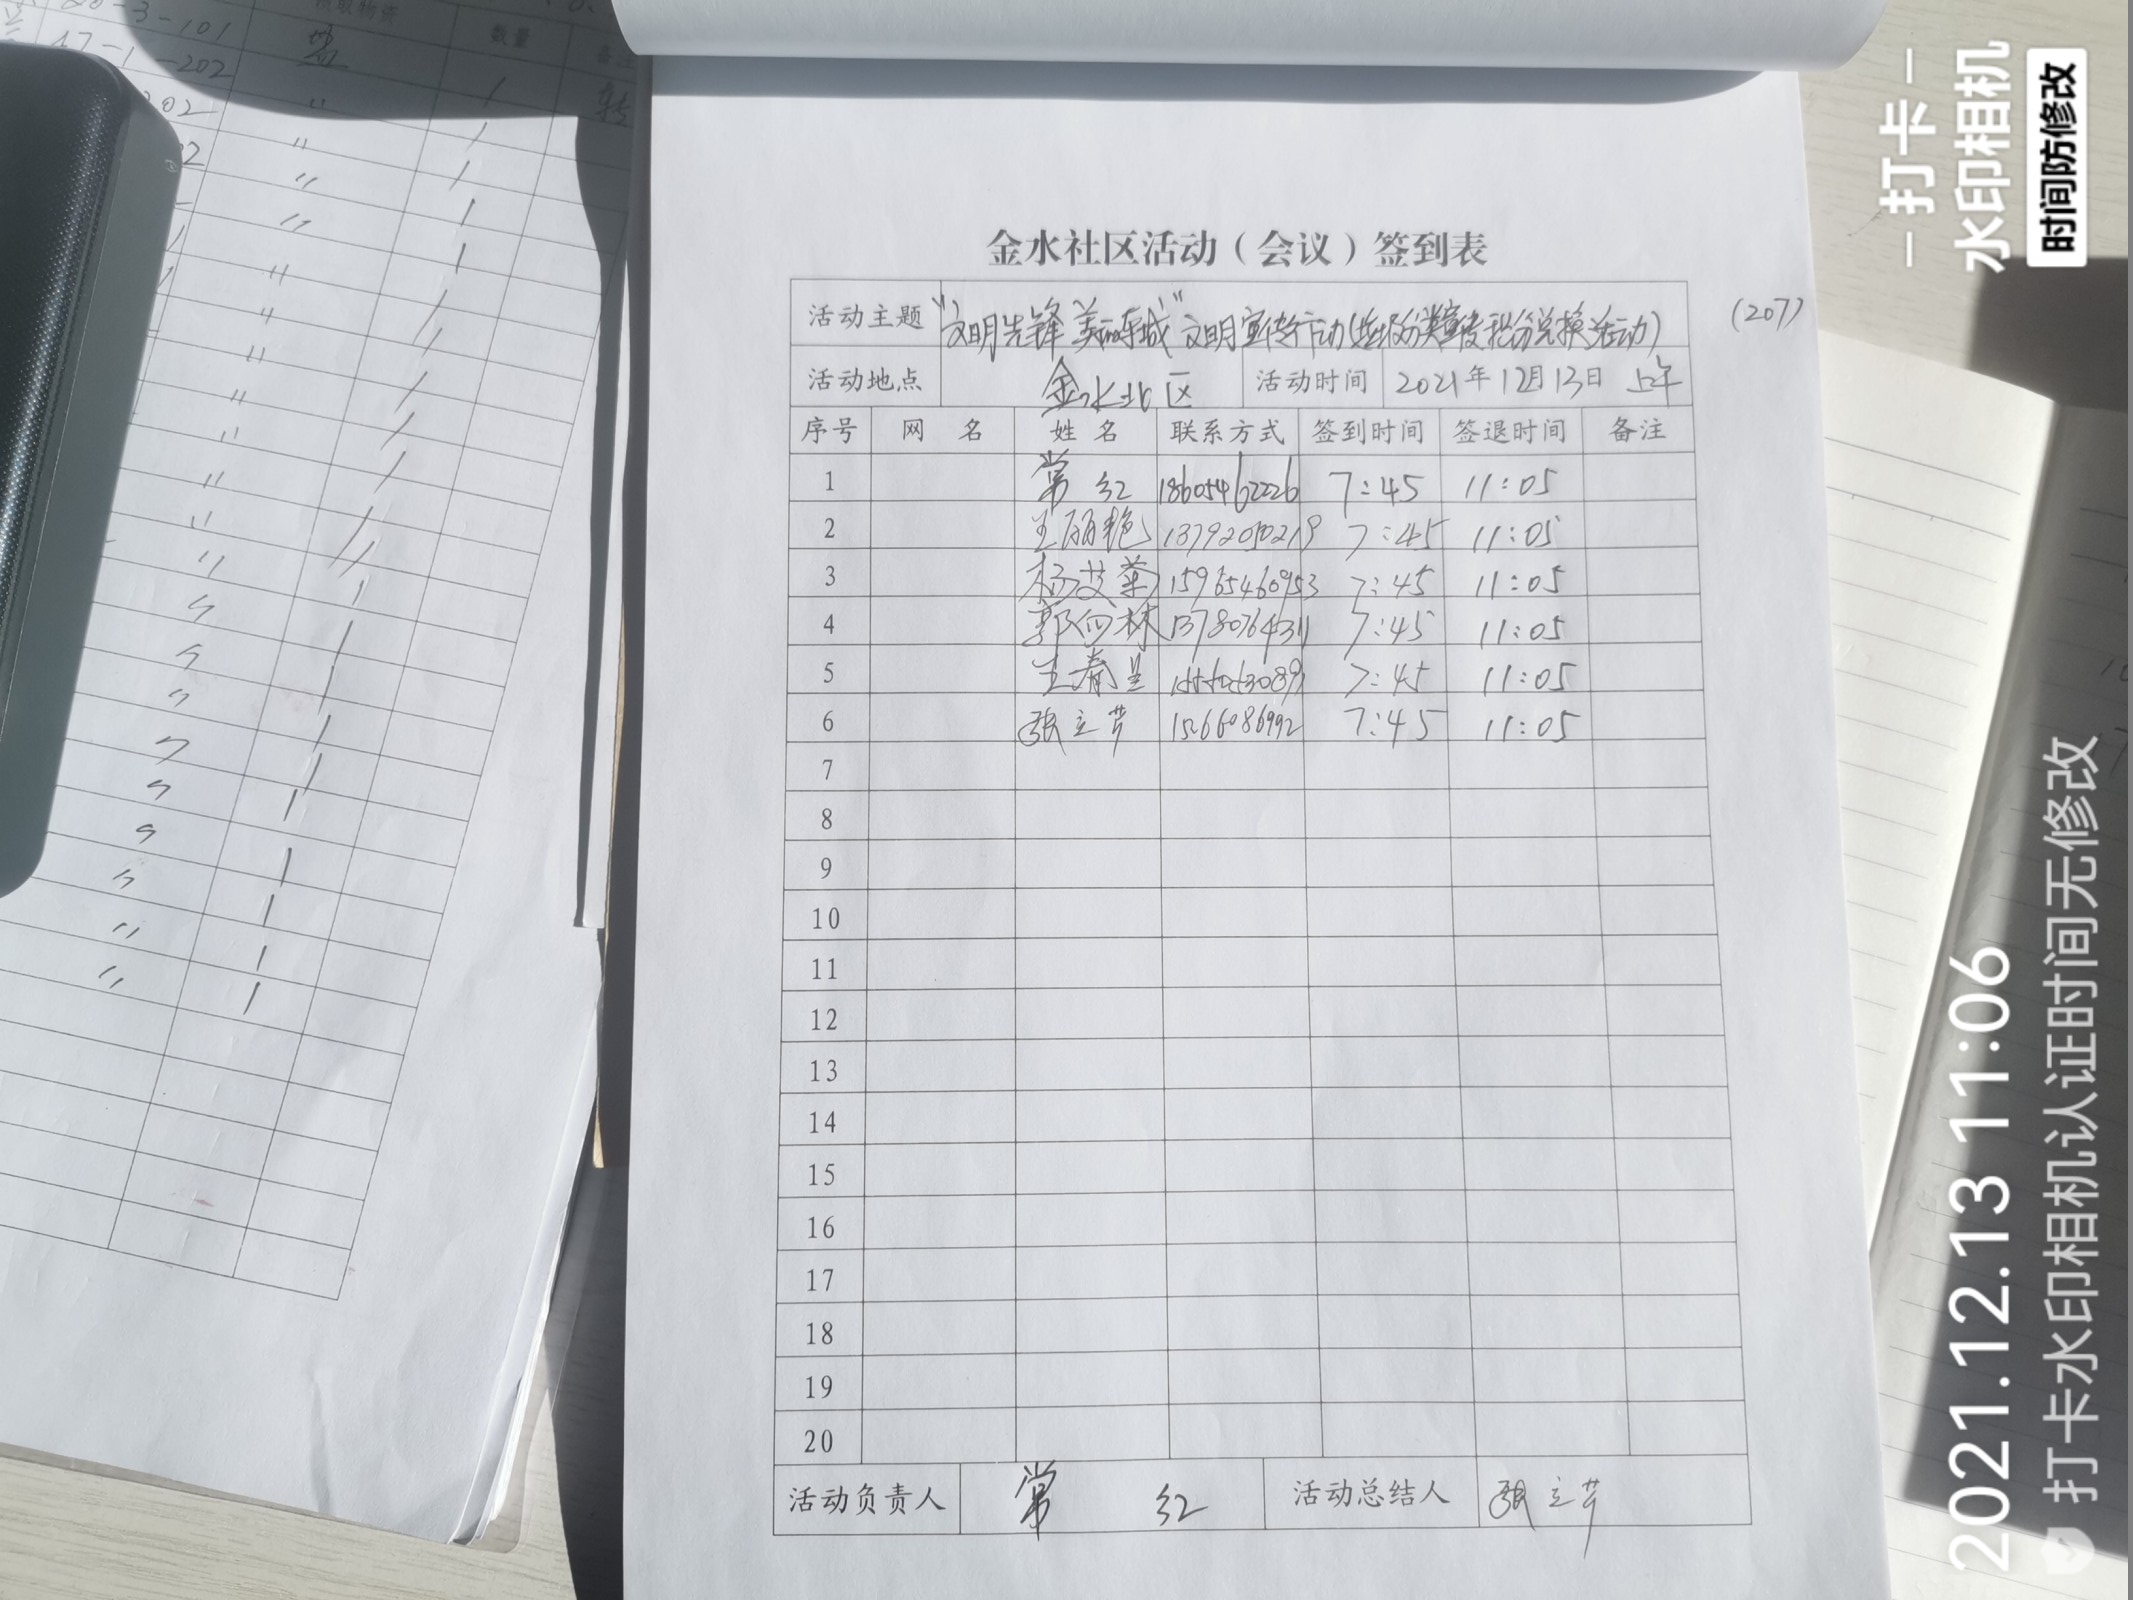 金水社区活动（会议）签到表
(207)
活动主题 "文明先锋 美丽东城"文明宣传行动(垃圾分类宣传积分兑换活动)
活动地点 金水北区 活动时间 2021年12月13日 上午
序号 网 名 姓 名 联系方式 签到时间 签退时间 备注
1 常 红 18605462226 7:45 11:05
2 王丽艳 13792050219 7:45 11:05
3 杨艾菊 15965460953 7:45 11:05
4 郭向林 13780764311 7:45 11:05
5 王春呈 7:45 11:05
6 张立芹 15266086992 7:45 11:05
7
8
9
10
11
12
13
14
15
16
17
18
19
20
活动负责人 常 红 活动总结人 张立芹
领取物资 数量 备注
20-3-101 盐
17-1-202 " 1
打卡
水印相机
时间防修改
2021.12.13 11:06
打卡水印相机认证时间无修改